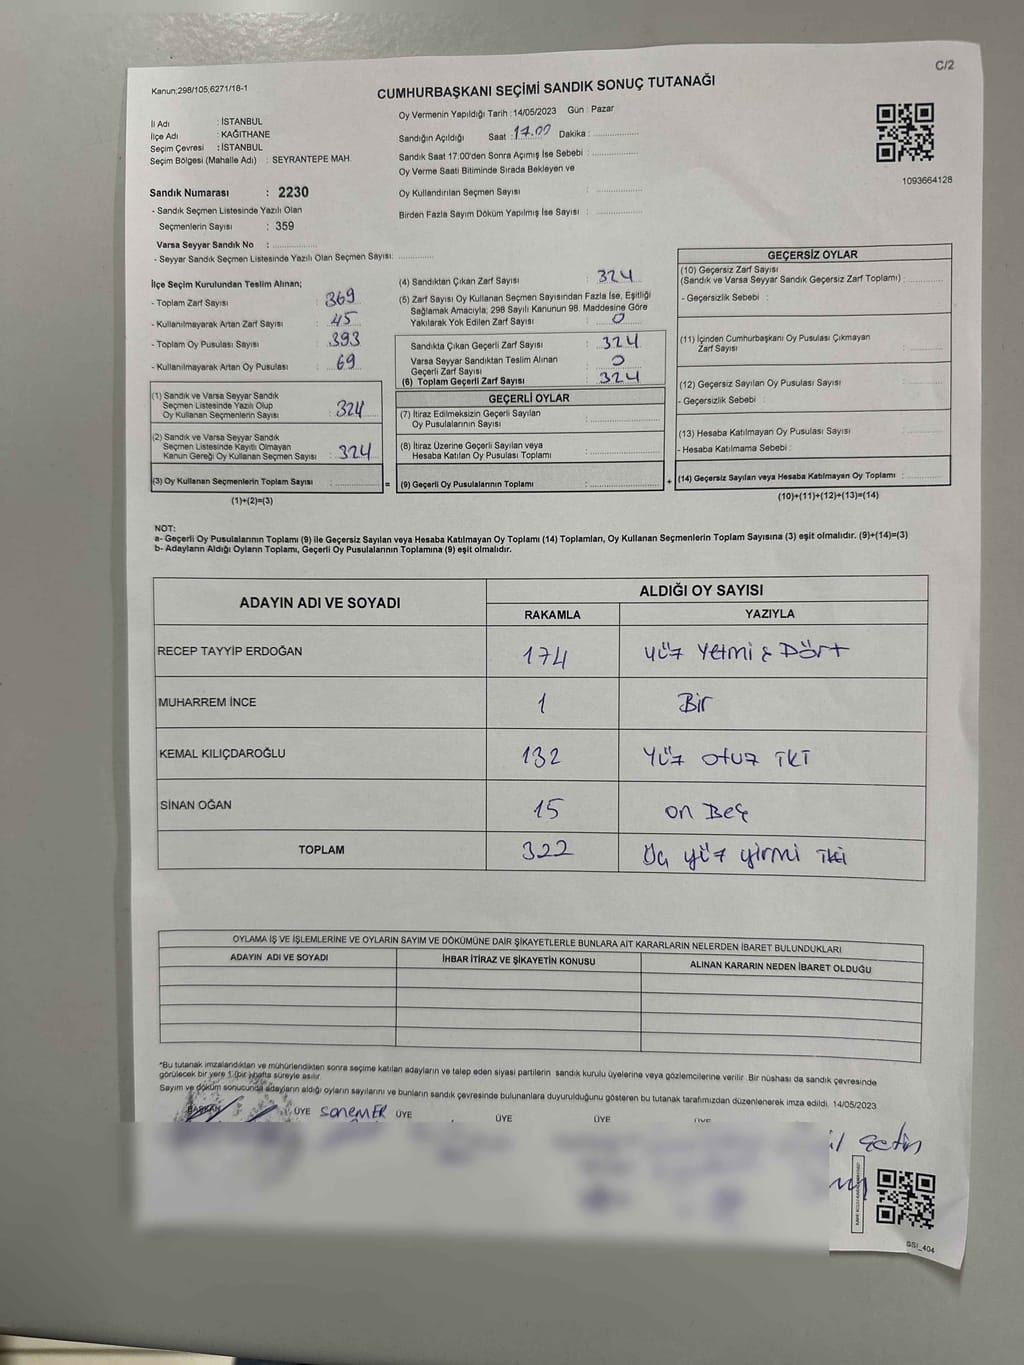 C/2
Kanun;298/105;6271/18-1
CUMHURBAŞKANI SEÇİMİ SANDIK SONUÇ TUTANAĞI
İl Adı : İSTANBUL
İlçe Adı : KAĞITHANE
Seçim Çevresi : İSTANBUL
Seçim Bölgesi (Mahalle Adı) : SEYRANTEPE MAH.
Sandık Numarası : 2230
- Sandık Seçmen Listesinde Yazılı Olan
Seçmenlerin Sayısı : 359
Varsa Seyyar Sandık No : ..............
- Seyyar Sandık Seçmen Listesinde Yazılı Olan Seçmen Sayısı: ..............
Oy Vermenin Yapıldığı Tarih :14/05/2023 Gün : Pazar
Sandığın Açıldığı Saat : 17.00 Dakika : ..............
Sandık Saat 17:00'den Sonra Açımış İse Sebebi : ..............
Oy Verme Saati Bitiminde Sırada Bekleyen ve
Oy Kullandırılan Seçmen Sayısı : ..............
Birden Fazla Sayım Döküm Yapılmış İse Sayısı : ..............
1093664128
İlçe Seçim Kurulundan Teslim Alınan;
- Toplam Zarf Sayısı : 369
- Kullanılmayarak Artan Zarf Sayısı : 45
- Toplam Oy Pusulası Sayısı : 393
- Kullanılmayarak Artan Oy Pusulası : 69
(1) Sandık ve Varsa Seyyar Sandık
Seçmen Listesinde Yazılı Olup
Oy Kullanan Seçmenlerin Sayısı : 324
(2) Sandık ve Varsa Seyyar Sandık
Seçmen Listesinde Kayıtlı Olmayan
Kanun Gereği Oy Kullanan Seçmen Sayısı : 324
(3) Oy Kullanan Seçmenlerin Toplam Sayısı : .............. =
(1)+(2)=(3)
(4) Sandıktan Çıkan Zarf Sayısı : 324
(5) Zarf Sayısı Oy Kullanan Seçmen Sayısından Fazla İse, Eşitliği
Sağlamak Amacıyla; 298 Sayılı Kanunun 98. Maddesine Göre
Yakılarak Yok Edilen Zarf Sayısı : 0
Sandıkta Çıkan Geçerli Zarf Sayısı : 324
Varsa Seyyar Sandıktan Teslim Alınan
Geçerli Zarf Sayısı : 0
(6) Toplam Geçerli Zarf Sayısı : 324
GEÇERLİ OYLAR
(7) İtiraz Edilmeksizin Geçerli Sayılan
Oy Pusulalarının Sayısı : ..............
(8) İtiraz Üzerine Geçerli Sayılan veya
Hesaba Katılan Oy Pusulası Toplamı : ..............
(9) Geçerli Oy Pusulalarının Toplamı : .............. +
GEÇERSİZ OYLAR
(10) Geçersiz Zarf Sayısı
(Sandık ve Varsa Seyyar Sandık Geçersiz Zarf Toplamı) : ..............
- Geçersizlik Sebebi :
(11) İçinden Cumhurbaşkanı Oy Pusulası Çıkmayan
Zarf Sayısı : ..............
(12) Geçersiz Sayılan Oy Pusulası Sayısı : ..............
- Geçersizlik Sebebi :
(13) Hesaba Katılmayan Oy Pusulası Sayısı : ..............
- Hesaba Katılmama Sebebi :
(14) Geçersiz Sayılan veya Hesaba Katılmayan Oy Toplamı : ..............
(10)+(11)+(12)+(13)=(14)
NOT:
a- Geçerli Oy Pusulalarının Toplamı (9) ile Geçersiz Sayılan veya Hesaba Katılmayan Oy Toplamı (14) Toplamları, Oy Kullanan Seçmenlerin Toplam Sayısına (3) eşit olmalıdır. (9)+(14)=(3)
b- Adayların Aldığı Oyların Toplamı, Geçerli Oy Pusulalarının Toplamına (9) eşit olmalıdır.
ADAYIN ADI VE SOYADI ALDIĞI OY SAYISI
RAKAMLA YAZIYLA
RECEP TAYYİP ERDOĞAN 174 yüz Yetmiş Dört
MUHARREM İNCE 1 Bir
KEMAL KILIÇDAROĞLU 132 Yüz otuz iki
SİNAN OĞAN 15 on Beş
TOPLAM 322 Üç yüz yirmi iki
OYLAMA İŞ VE İŞLEMLERİNE VE OYLARIN SAYIM VE DÖKÜMÜNE DAİR ŞİKAYETLERLE BUNLARA AİT KARARLARIN NELERDEN İBARET BULUNDUKLARI
ADAYIN ADI VE SOYADI İHBAR İTİRAZ VE ŞİKAYETİN KONUSU ALINAN KARARIN NEDEN İBARET OLDUĞU
*Bu tutanak imzalandıktan ve mühürlendikten sonra seçime katılan adayların ve talep eden siyasi partilerin sandık kurulu üyelerine veya gözlemcilerine verilir .Bir nüshası da sandık çevresinde
görülecek bir yere 1 (bir) hafta süreyle asılır.
Sayım ve döküm sonucunda adayların aldığı oyların sayılarını ve bunların sandık çevresinde bulunanlara duyurulduğunu gösteren bu tutanak tarafımızdan düzenlenerek imza edildi. 14/05/2023
BAŞKAN ÜYE SONEMER ÜYE ÜYE ÜYE ÜYE
Çetin
SSI_404